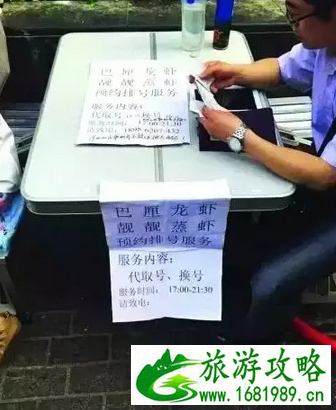 巴厘龙虾
靓靓蒸虾
预约排号服务
服务内容：
代取号、换号
服务时间：17:00-21:30
请致电：
巴厘龙虾
靓靓蒸虾
预约排号服务
服务内容：
代取号、换号
服务时间：17:00-21:30
请致电：
旅游攻略
www.1681989.cn